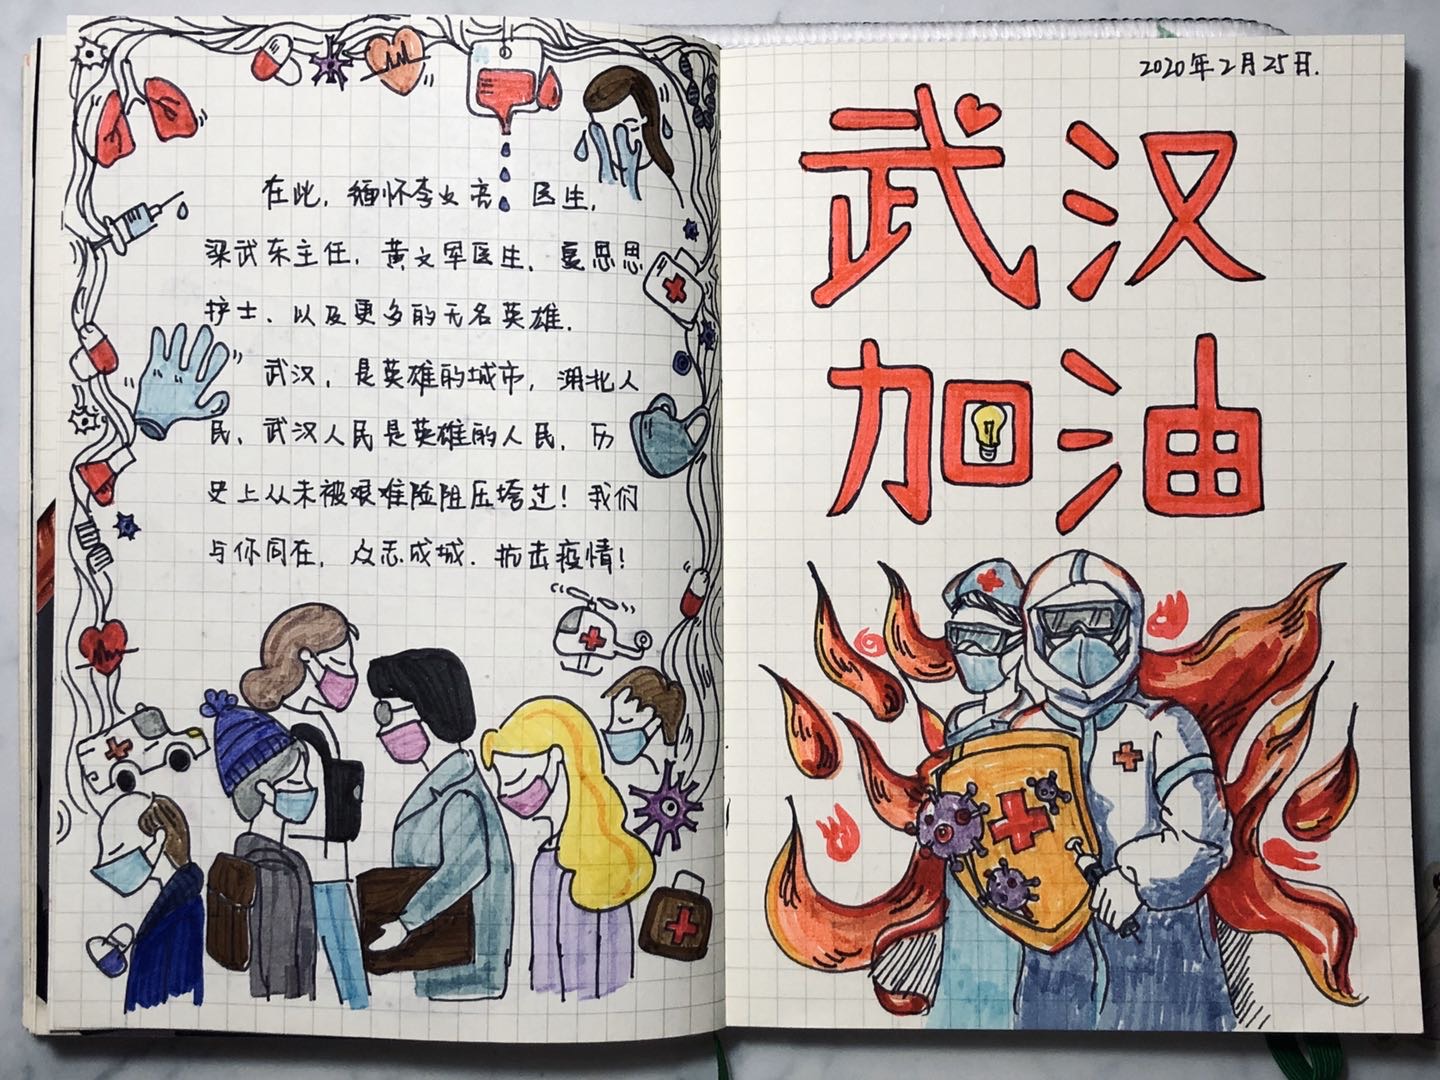 在此，缅怀李文亮医生，
梁武东主任，黄文军医生，夏思思
护士、以及更多的无名英雄．
武汉，是英雄的城市，湖北人
民、武汉人民是英雄的人民，历
史上从未被艰难险阻压垮过！我们
与你同在，众志成城．抗击疫情！
2020年2月25日.
武汉
加油